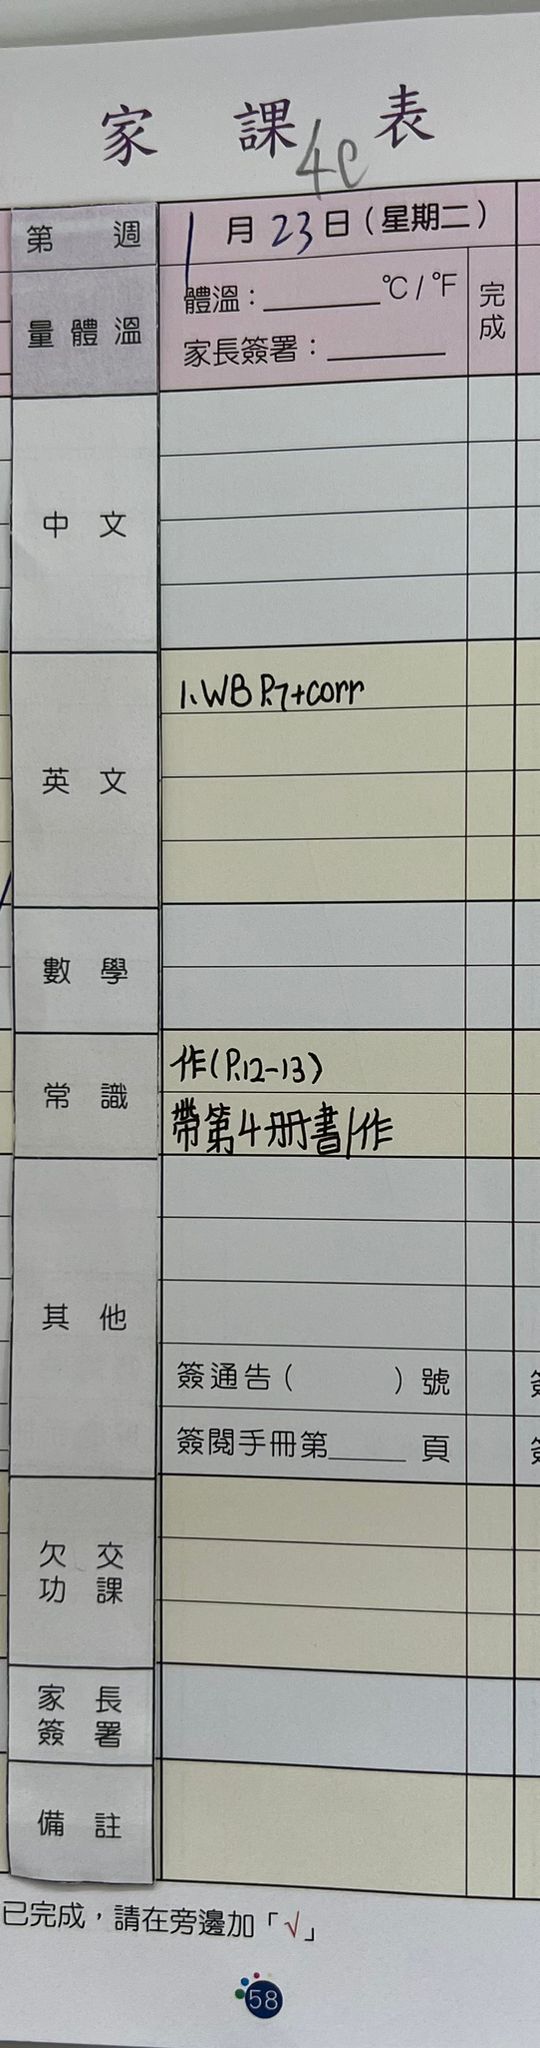 家 課 表
4C
第 週 1月23日(星期二)
量體溫 體溫：______°C / °F 完成
家長簽署：______
中 文
英 文
1. WB P.7+corr
數 學
常 識
作(P.12-13)
帶第4册書/作
其 他
簽通告( )號
簽閱手冊第____頁
欠 交
功 課
家 長
簽 署
備 註
已完成，請在旁邊加「√」
58